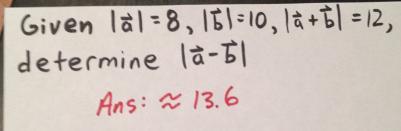 Given |a⃗| = 8, |b⃗| = 10, |a⃗ + b⃗| = 12,
determine |a⃗ - b⃗|
Ans: ≈ 13.6